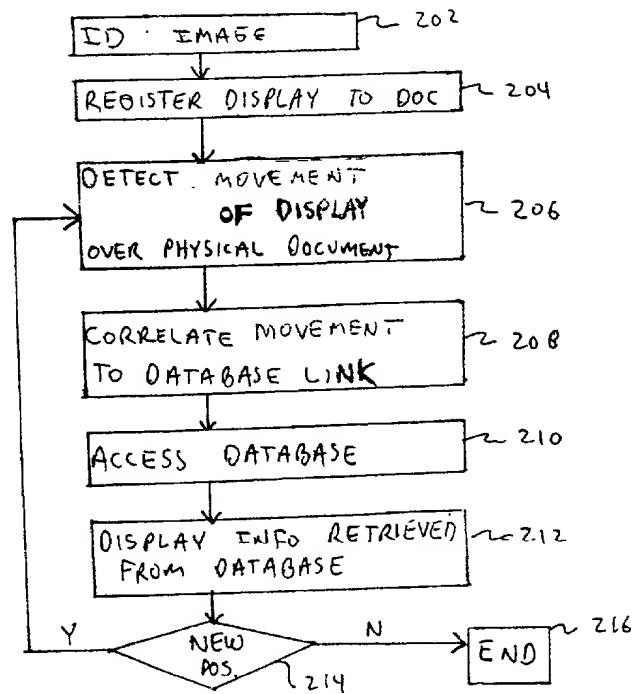 ID IMAGE
202
REGISTER DISPLAY TO DOC
204
DETECT MOVEMENT
OF DISPLAY
OVER PHYSICAL DOCUMENT
206
CORRELATE MOVEMENT
TO DATABASE LINK
208
ACCESS DATABASE
210
DISPLAY INFO RETRIEVED
FROM DATABASE
212
Y
NEW
POS.
214
N
END
216